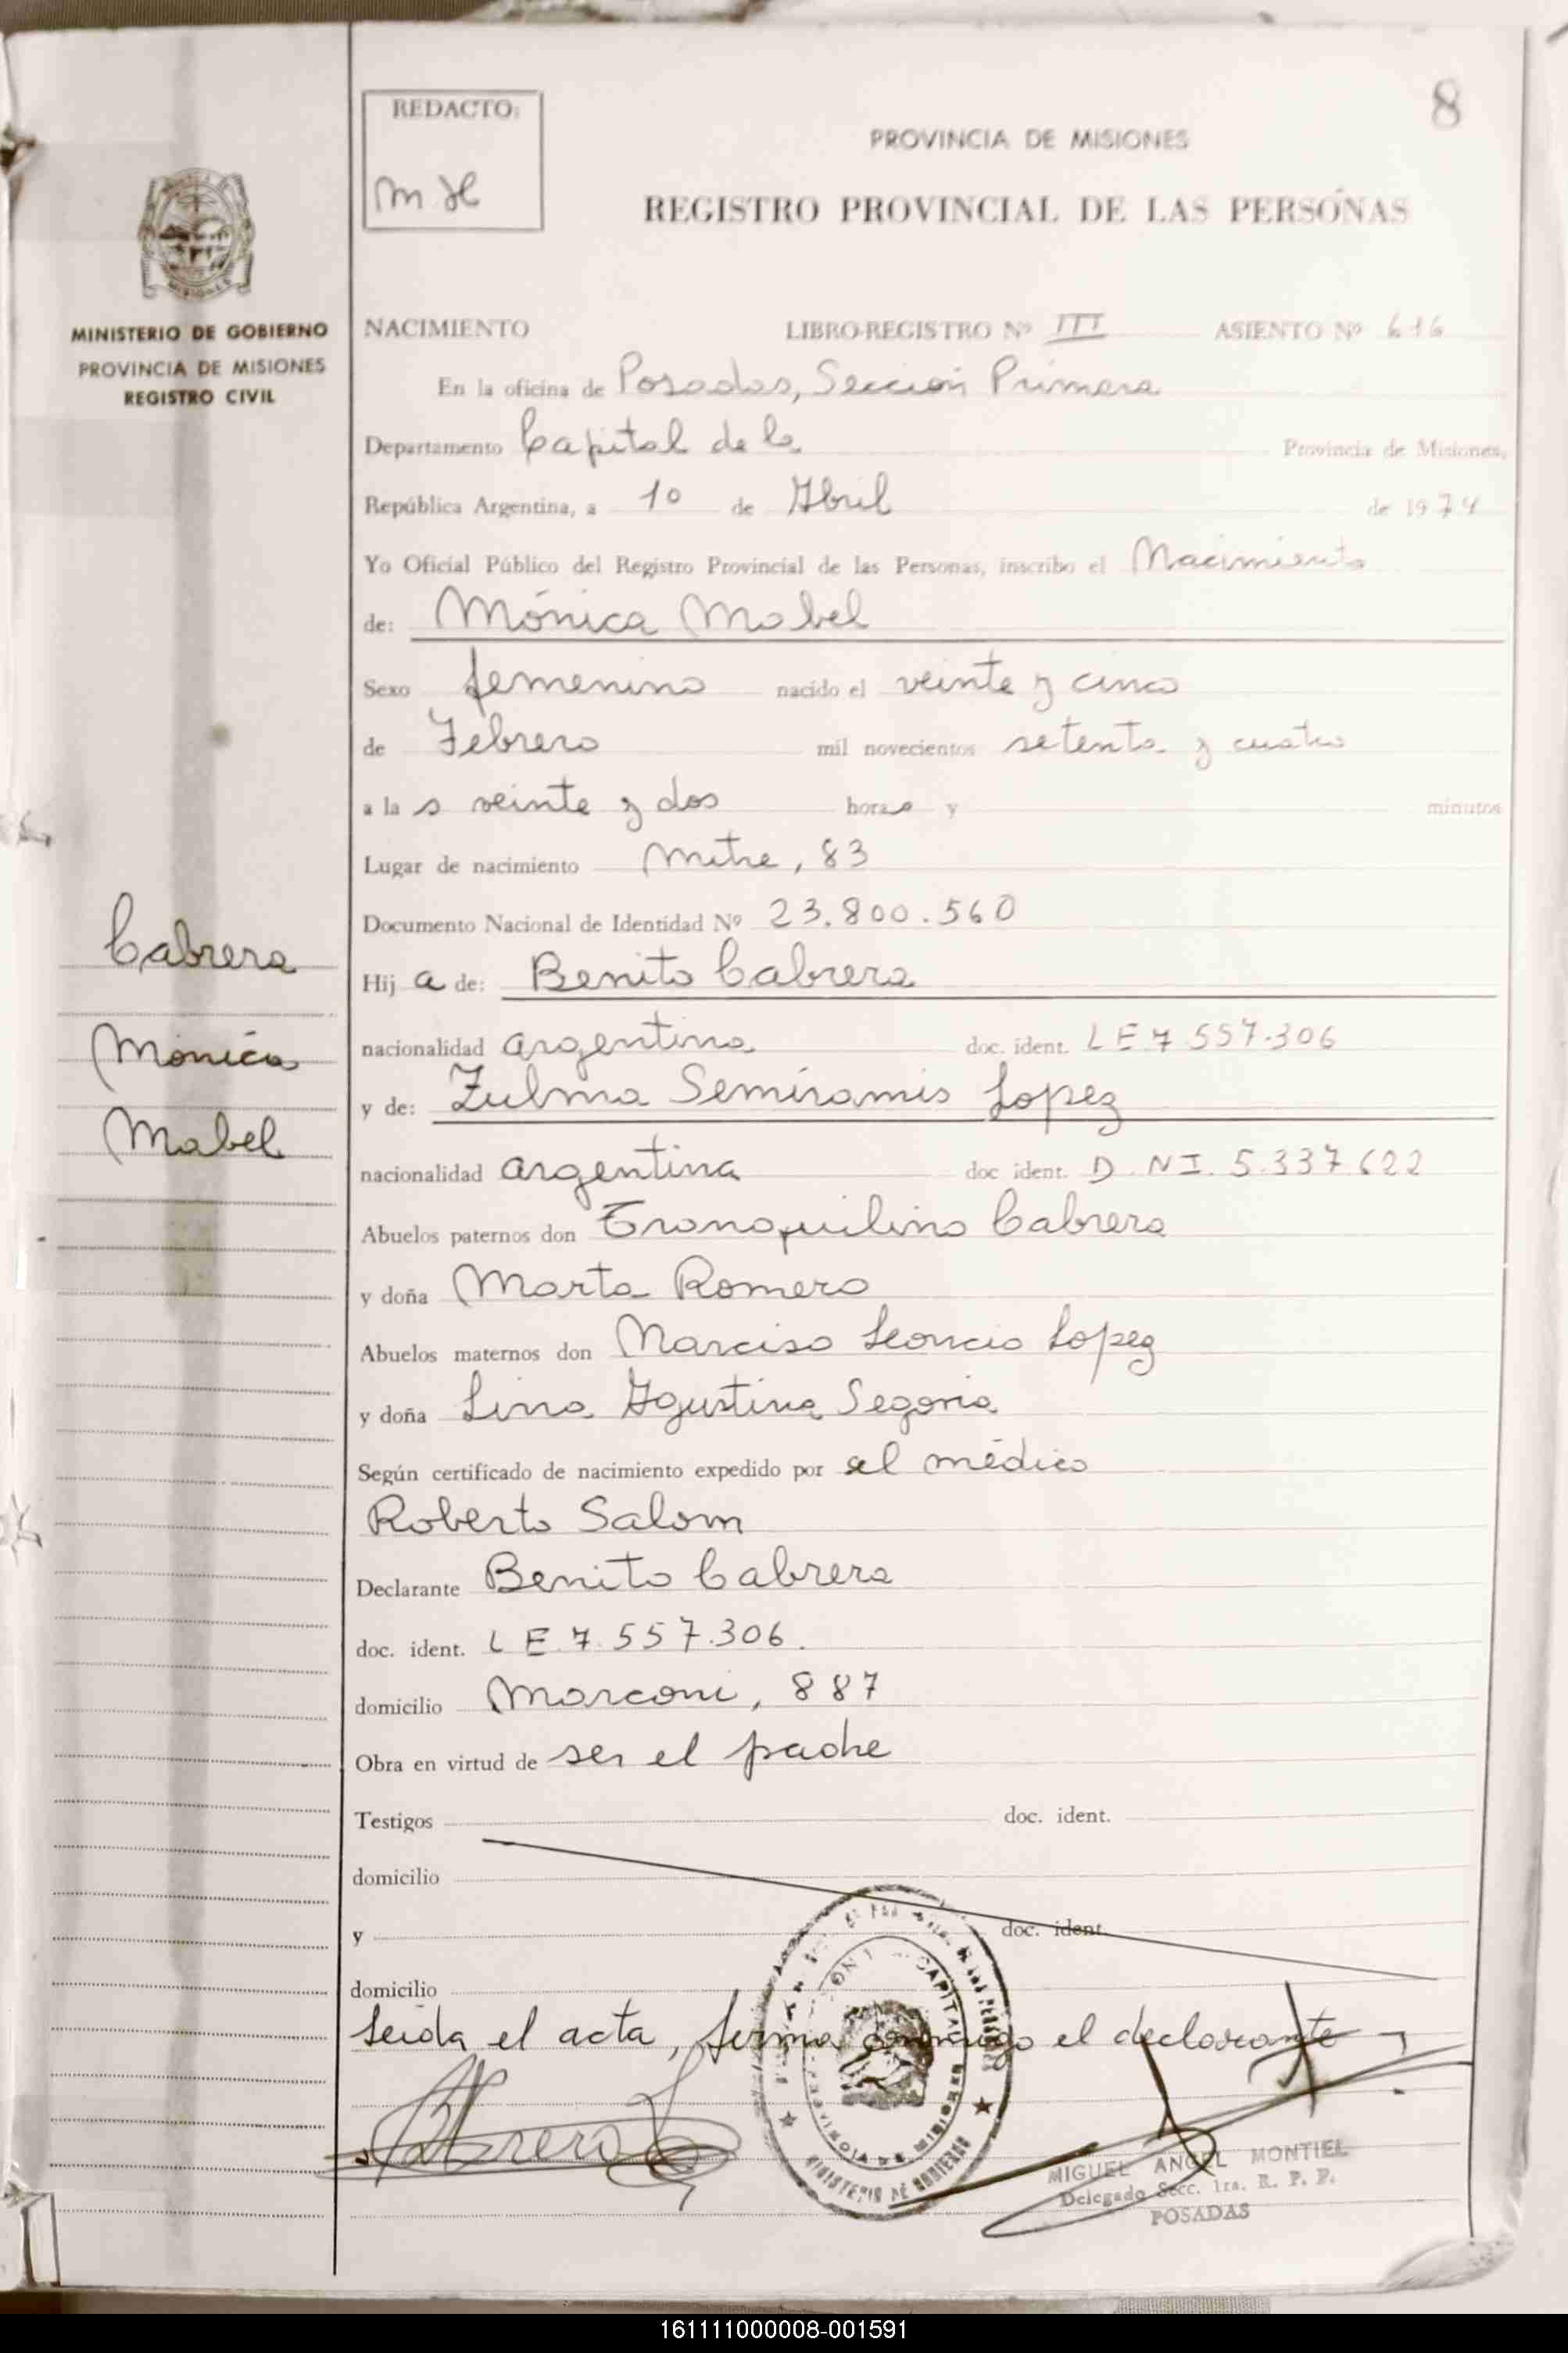 8
REDACTO:
PROVINCIA DE MISIONES
REGISTRO PROVINCIAL DE LAS PERSONAS
MISIONES
MINISTERIO DE GOBIERNO
PROVINCIA DE MISIONES
REGISTRO CIVIL
NACIMIENTO LIBRO-REGISTRO Nº III ASIENTO Nº 616
En la oficina de Posadas, Sección Primera
Departamento Capital de la Provincia de Misiones,
República Argentina, a 10 de Abril de 1974
Yo Oficial Público del Registro Provincial de las Personas, inscribo el Nacimiento
de: Mónica Mabel
Sexo femenino nacido el veinte y cinco
de Febrero mil novecientos setenta y cuatro
a la s veinte y dos horas y minutos
Lugar de nacimiento Mitre, 83
Documento Nacional de Identidad Nº 23.800.560
Cabrera
Mónica
Mabel
Hij a de: Benito Cabrera
nacionalidad argentina doc. ident. LE 7 557.306
y de: Zulma Semíramis Lopez
nacionalidad argentina doc ident. D.NI. 5.337.622
Abuelos paternos don Tranquilino Cabrera
y doña Marta Romero
Abuelos maternos don Narciso Leoncio Lopez
y doña Lina Agustina Segovia
Según certificado de nacimiento expedido por el médico
Roberto Salom
Declarante Benito Cabrera
doc. ident. LE.7.557.306.
domicilio Marconi, 887
Obra en virtud de ser el padre
Testigos doc. ident.
domicilio
y doc. ident.
domicilio
Leída el acta, firma conmigo el declarante
CAPITAL
PROVINCIA DE MISIONES
MINISTERIO DE GOBIERNO
MIGUEL ANGEL MONTIEL
Delegado Secc. 1ra. R. P. P.
POSADAS
161111000008-001591